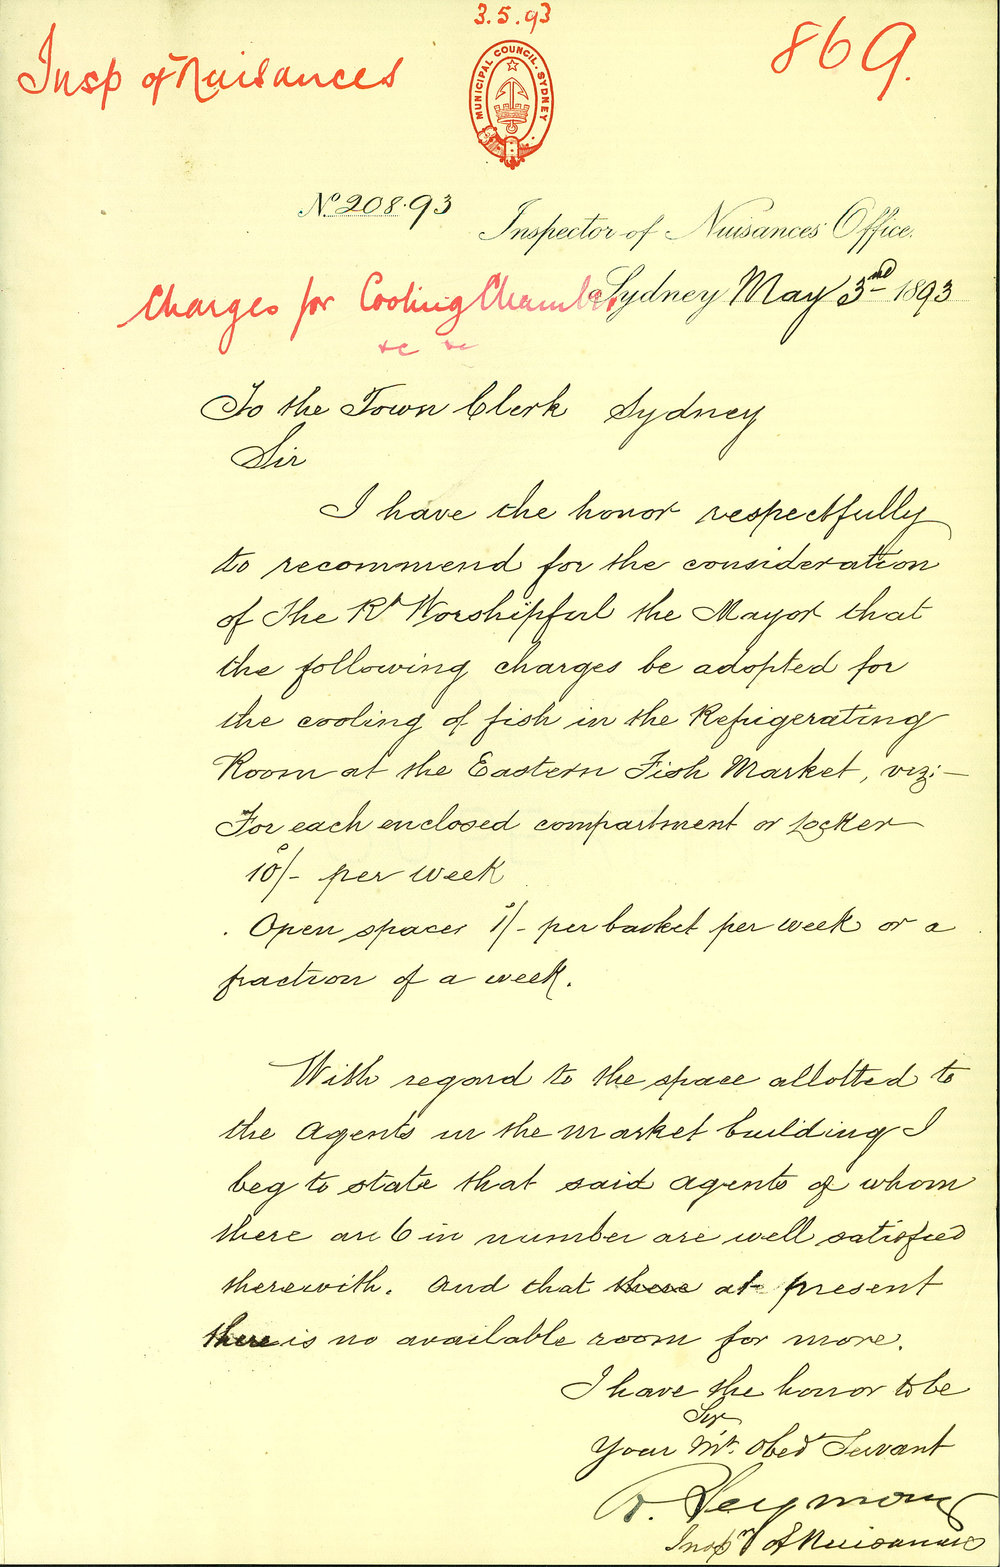 3.5.93
Insp of Nuisances
869.
MUNICIPAL COUNCIL. SYDNEY
No. 208.93
Inspector of Nuisances' Office.
Charges for Cooling Chamber
&c &c
Sydney May 3rd 1893
To the Town Clerk Sydney
Sir
I have the honor respectfully
to recommend for the consideration
of The Rt Worshipful the Mayor that
the following charges be adopted for
the cooling of fish in the Refrigerating
Room at the Eastern Fish Market, viz:—
For each enclosed compartment or Locker
10/- per week
. Open spaces 1/- per basket per week or a
fraction of a week.
With regard to the space allotted to
the Agents in the market building I
beg to state that said agents of whom
there are 6 in number are well satisfied
therewith. and that there at present
there is no available room for more.
I have the honor to be
Sir
Your Mt. Obed Servant
R. Seymour
Inspr of Nuisances